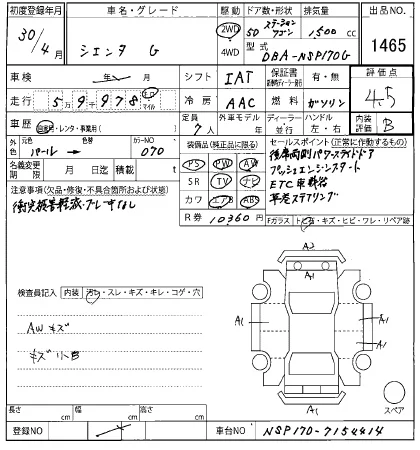 初度登録年月 車名・グレード 駆動 ドア数・形状 排気量 出品NO.
30/4月 シエンタ G 2WD 4WD 5D ステーションワゴン 1500cc 1465
型式 DBA-NSP170G
車検 年 月 シフト IAT 保証書 有・無 評価点
走行 59978 キロ マイル 冷房 AAC 燃料 ガソリン 4.5
車歴 自家用・レンタ・事業用( ) 定員 7人 外車モデル 年 ディーラー 並行 ハンドル 左・右 内装評価 B
外色 元色 パール 色替 カラーNO 070
装備品(純正品に限る) セールスポイント(正常に作動するもの)
名義変更期限 月 日迄 積載 t
PS PW AW
後席両側パワースライドドア
注意事項(欠品・修復・不具合箇所および状態)
SR TV ナビ
プッシュエンジンスタート
ETC車載器
衝突被害軽減ブレーキなし
カワ エアB ABS
革巻ステアリング
R券 10360円
Fガラス トビ石・キズ・ヒビ・ワレ・リペア跡
検査員記入 内装 汚れ・スレ・キズ・キレ・コゲ・穴
AWキズ
キズ小凹
A1
A1
A1
A1
A1
スペア
長さ cm 幅 cm 高さ cm
登録NO 車台NO. NSP170-7154414